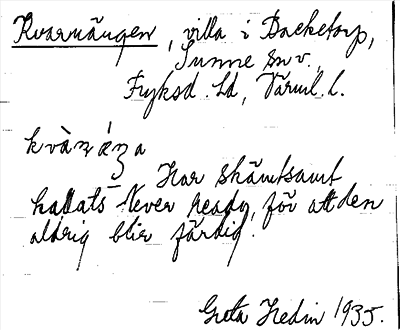 Kvarnängen, villa i Backetorp,
Sunne sn v.,
Fryksd. hd, Värml. l.
kvà̀ṇáŋa
Har skämtsamt
kallats Never Ready, för att den
aldrig blir färdig.
Greta Hedin 1935.